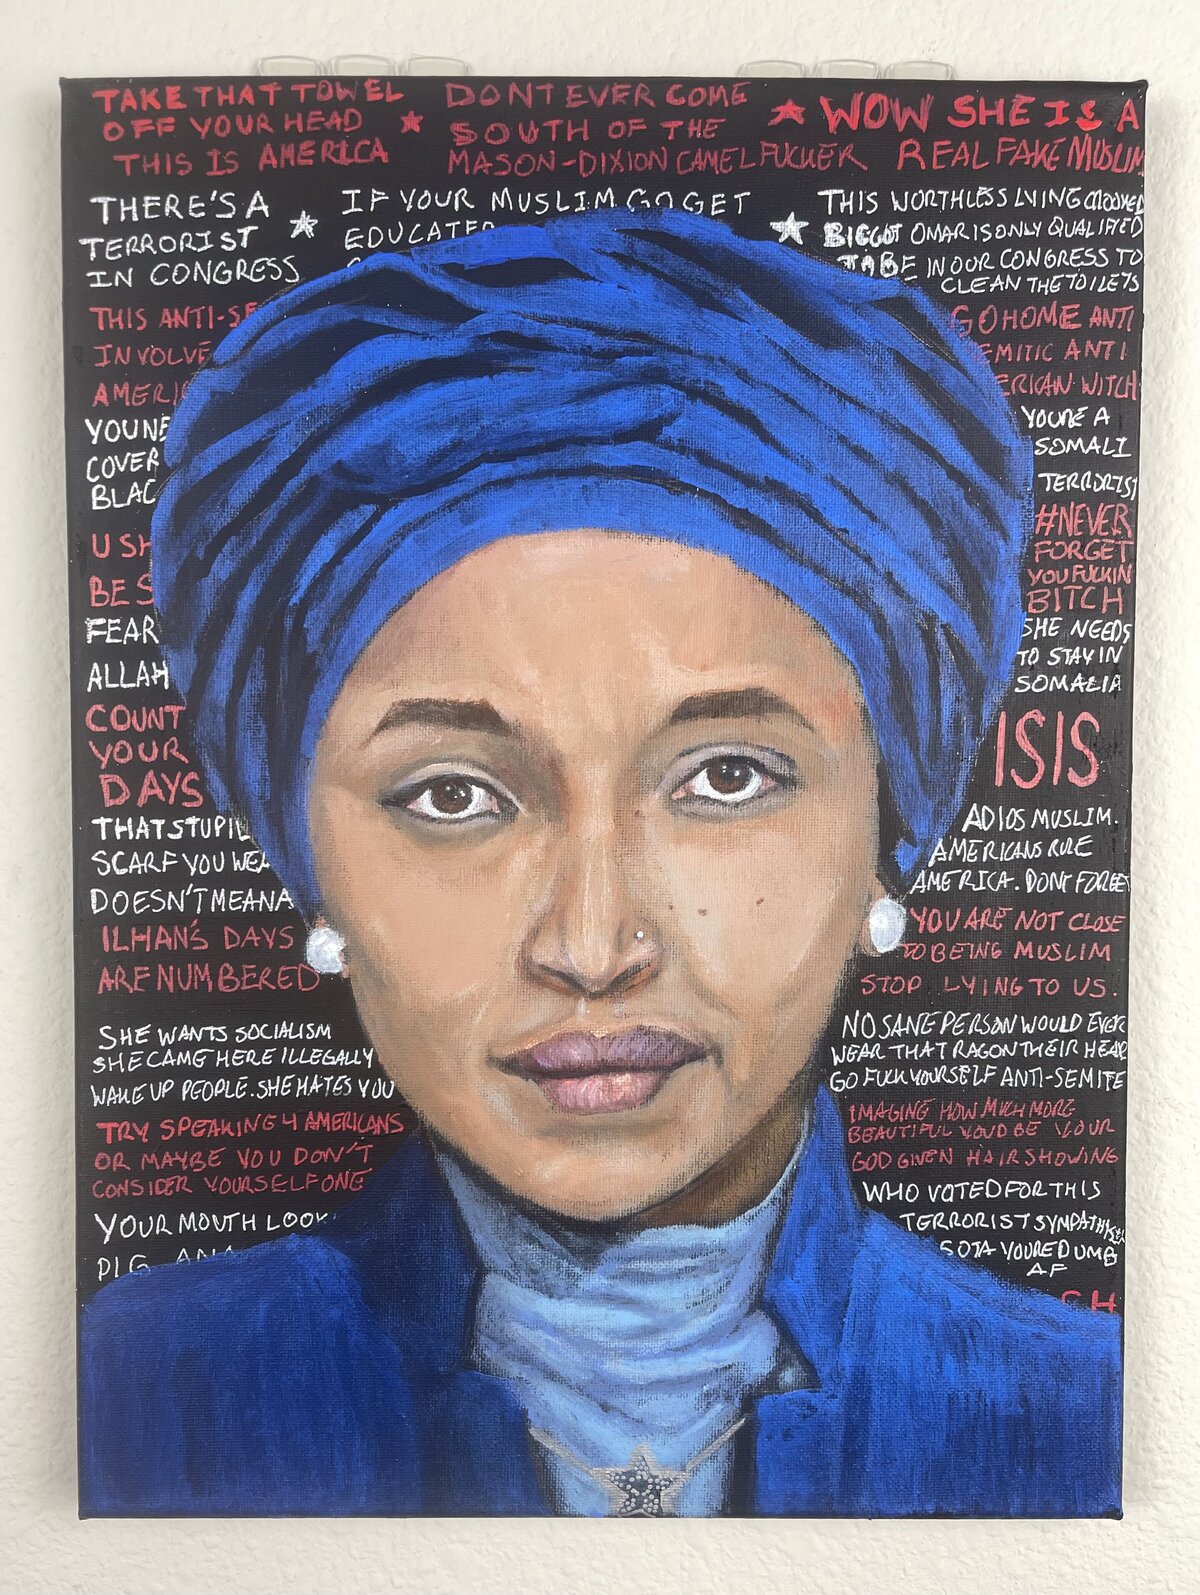 TAKE THAT TOWEL
OFF YOUR HEAD
THIS IS AMERICA
DONT EVER COME
SOUTH OF THE
MASON-DIXION CAMEL FUCKER
WOW SHE IS A
REAL FAKE MUSLIM
THERE'S A
TERRORIST
IN CONGRESS
IF YOUR MUSLIM GO GET
EDUCATED
THIS WORTHLESS LYING CROOKED
BIGGOT OMAR IS ONLY QUALIFIED
TA BE IN OUR CONGRESS TO
CLEAN THE TOILETS
THIS ANTI-SE
INVOLVE
AMERI
GO HOME ANTI
EMITIC ANTI
ERICAN WITCH
YOU NE
COVER
BLAC
YOURE A
SOMALI
TERRORIST
U SH
BE S
FEAR
ALLAH
#NEVER
FORGET
YOU FUCKIN
BITCH
SHE NEEDS
TO STAY IN
SOMALIA
COUNT
YOUR
DAYS
ISIS
THAT STUPID
SCARF YOU WEA
DOESN'T MEAN A
ADIOS MUSLIM.
AMERICANS RULE
AMERICA. DONT FORGET
ILHAN'S DAYS
ARE NUMBERED
YOU ARE NOT CLOSE
TO BEING MUSLIM
STOP LYING TO US.
SHE WANTS SOCIALISM
SHE CAME HERE ILLEGALLY
WAKE UP PEOPLE. SHE HATES YOU
NO SANE PERSON WOULD EVER
WEAR THAT RAG ON THEIR HEAD
GO FUCK YOURSELF ANTI-SEMITE
TRY SPEAKING 4 AMERICANS
OR MAYBE YOU DON'T
CONSIDER YOURSELF ONE
IMAGING HOW MUCH MORE
BEAUTIFUL YOUD BE YOUR
GOD GIVEN HAIR SHOWING
YOUR MOUTH LOOK
PIG ANA
WHO VOTED FOR THIS
TERRORIST
SOTA YOURE DUMB
AF
CH